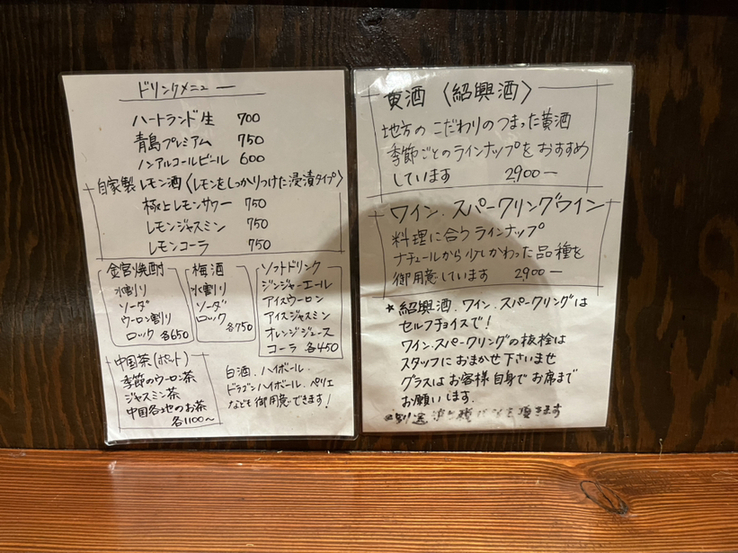 ドリンクメニュー
ハートランド生 700
青島プレミアム 750
ノンアルコールビール 600
自家製レモン酒〈レモンをしっかりつけた浸漬タイプ〉
極上レモンサワー 750
レモンジャスミン 750
レモンコーラ 750
金宮焼酎
水割り
ソーダ
ウーロン割り
ロック 各650
梅酒
水割り
ソーダ
ロック 各750
ソフトドリンク
ジンジャーエール
アイスウーロン
アイスジャスミン
オレンジジュース
コーラ 各450
中国茶(ポット)
季節のウーロン茶
ジャスミン茶
中国各地のお茶
各1100〜
白酒.ハイボール.
ドラゴンハイボール.ペリエ
なども御用意できます!
黄酒〈紹興酒〉
地方のこだわりのつまった黄酒
季節ごとのラインナップをおすすめ
しています 2,900ー
ワイン.スパークリングワイン
料理に合うラインナップ
ナチュールから少しかわった品種を
御用意しています 2,900ー
★紹興酒.ワイン.スパークリングは
セルフチョイスで!
ワイン.スパークリングの抜栓は
スタッフにおまかせ下さいませ
グラスはお客様自身でお席まで
お願いします.
別途 を頂きます